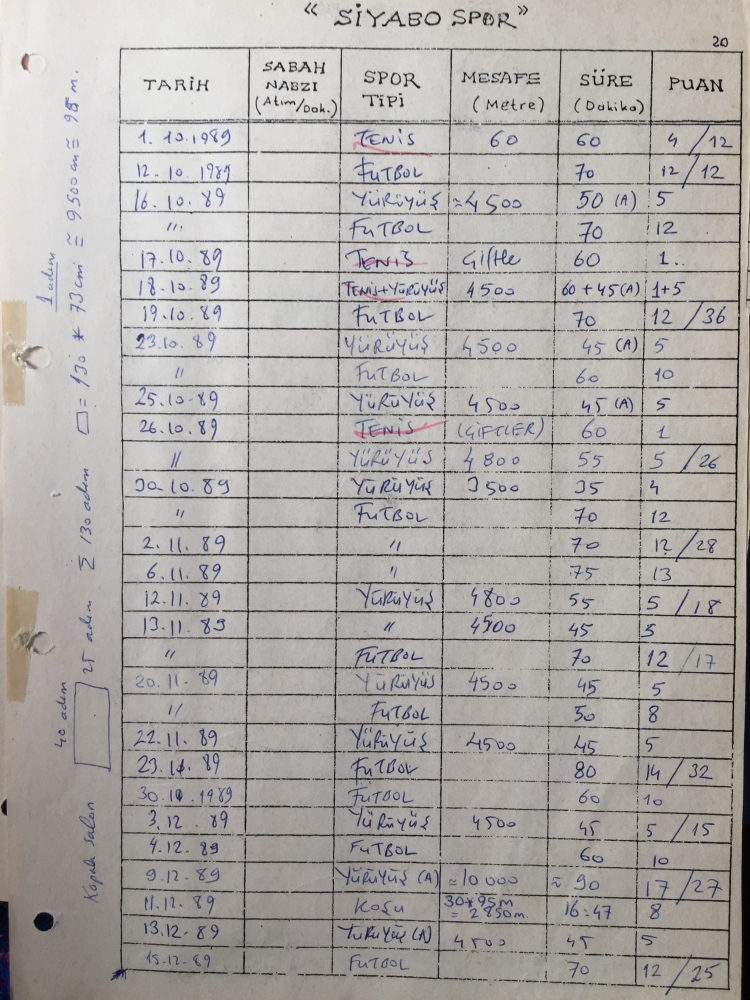 "SİYABO SPOR"
20
TARİH SABAH NABZI (Atım/Dak.) SPOR TİPİ MESAFE (Metre) SÜRE (Dakika) PUAN
1. 10.1989 TENİS 60 60 4 /12
12.10.1989 FUTBOL 70 12/12
16.10.89 YÜRÜYÜŞ ≈4500 50 (A) 5
" FUTBOL 70 12
17.10.89 TENİS Çiftle 60 1..
18.10.89 TENİS+YÜRÜYÜŞ 4500 60+45(A) 1+5
19.10.89 FUTBOL 70 12 /36
23.10.89 YÜRÜYÜŞ 4500 45 (A) 5
" FUTBOL 60 10
25.10.89 YÜRÜYÜŞ 4500 45 (A) 5
26.10.89 TENİS (ÇİFTLER) 60 1
" YÜRÜYÜŞ 4800 55 5 /26
30.10.89 YÜRÜYÜŞ 3500 35 4
" FUTBOL 70 12
2.11.89 " 70 12/28
6.11.89 " 75 13
12.11.89 YÜRÜYÜŞ 4800 55 5 /18
13.11.89 " 4500 45 5
" FUTBOL 70 12 /17
20.11.89 YÜRÜYÜŞ 4500 45 5
" FUTBOL 50 8
22.11.89 YÜRÜYÜŞ 4500 45 5
23.11.89 FUTBOL 80 14/32
30.11.1989 FUTBOL 60 10
3.12.89 YÜRÜYÜŞ 4500 45 5 /15
4.12.89 FUTBOL 60 10
9.12.89 YÜRÜYÜŞ (A) ≈10000 ≈90 17/27
11.12.89 KOŞU 30*95m = 2850m. 16:47 8
13.12.89 YÜRÜYÜŞ (A) 4500 45 5
15.12.89 FUTBOL 70 12 /25
Kapalı salon
40 adım
25 adım Σ 130 adım
1 adım
= 130 * 73 cm ≅ 9500 cm ≅ 95 m.